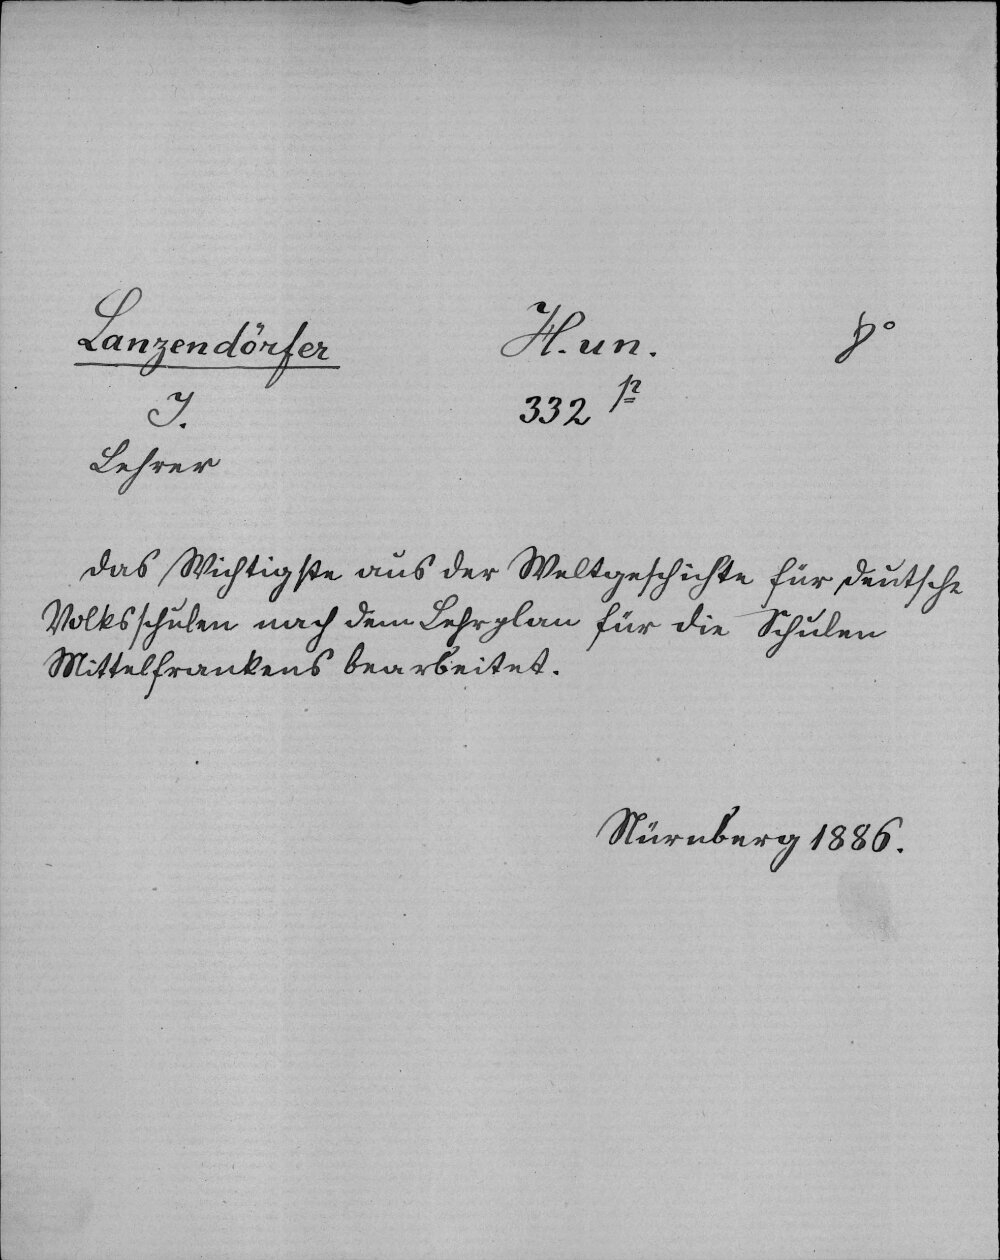 Lanzendörfer H. un. 8°
J. 332 p
Lehrer
Das Wichtigste aus der Weltgeschichte für deutsche
Volksschulen nach dem Lehrplan für die Schulen
Mittelfrankens bearbeitet.
Nürnberg 1886.